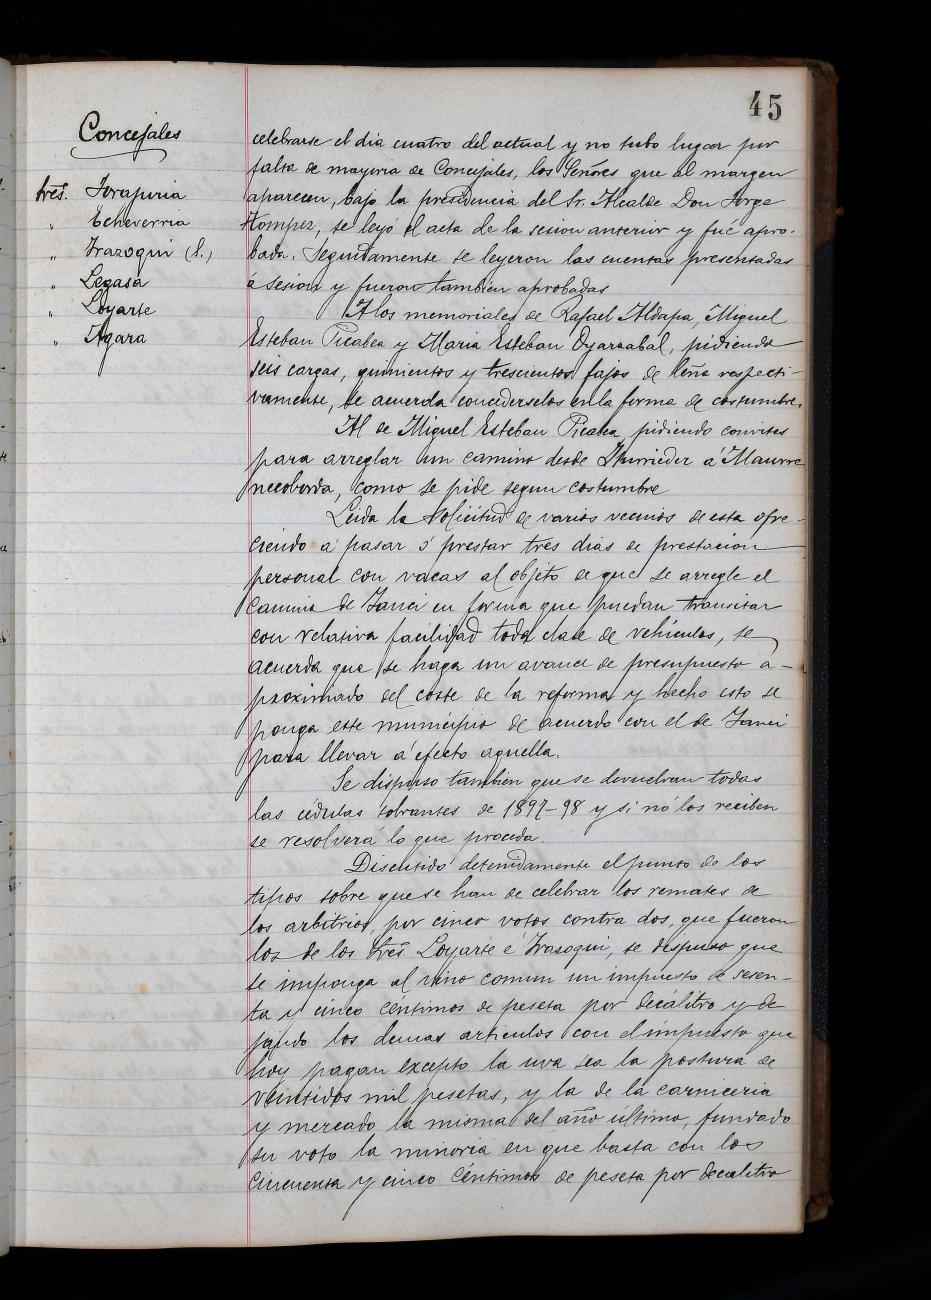 45
Concejales
Sres. Iorapuria
" Echeverria
" Irazoqui (S.)
" Legasa
" Loyarte
" Agara
celebrarse el dia cuatro del actual y no tubo lugar por
falta de mayoria de Concejales, los Señores que al margen
aparecen, bajo la presidencia del Sr. Alcalde Don Jorge
se leyó el acta de la sesion anterior y fué apro-
bada. Seguidamente se leyeron las cuentas presentadas
á sesion y fueron tambien aprobadas
A los memoriales de Rafael Aldapa, Miguel
Esteban Picabea y Maria Esteban Oyarzabal, pidiendo
seis cargas, quinientos y trescientos fajos de leña respecti-
vamente, se acuerda concederselos en la forma de costumbre.
Al de Miguel Esteban Picabea, pidiendo convites
para arreglar un camino desde á Maurre
necoborda, como se pide segun costumbre
Leida la solicitud de varios vecinos de esta ofre-
ciendo á pasar ó prestar tres dias de prestacion
personal con vacas al objeto de que se arregle el
camino de Yanci en forma que puedan transitar
con relativa facilidad toda clase de vehiculos, se
acuerda que se haga un avance de presupuesto a-
proximado del coste de la reforma y hecho esto se
ponga este municipio de acuerdo con el de Yanci
para llevar á efecto aquella.
Se dispuso tambien que se devuelvan todas
las cédulas sobrantes de 1897-98 y si nó los reciben
se resolverá lo que proceda.
Discutido detenidamente el punto de los
tipos sobre que se han de celebrar los remates de
los arbitrios, por cinco votos contra dos, que fueron
los de los Sres Loyarte é Irazoqui, se dispuso que
se imponga al vino comun un impuesto de sesen-
ta y cinco céntimos de peseta por decálitro y de
jando los demas articulos con el impuesto que
hoy pagan excepto la uva sea la postura de
veintidos mil pesetas, y la de la carniceria
y mercado la misma del año último, fundado
su voto la minoria en que basta con los
cincuenta y cinco céntimos de peseta por decalitro